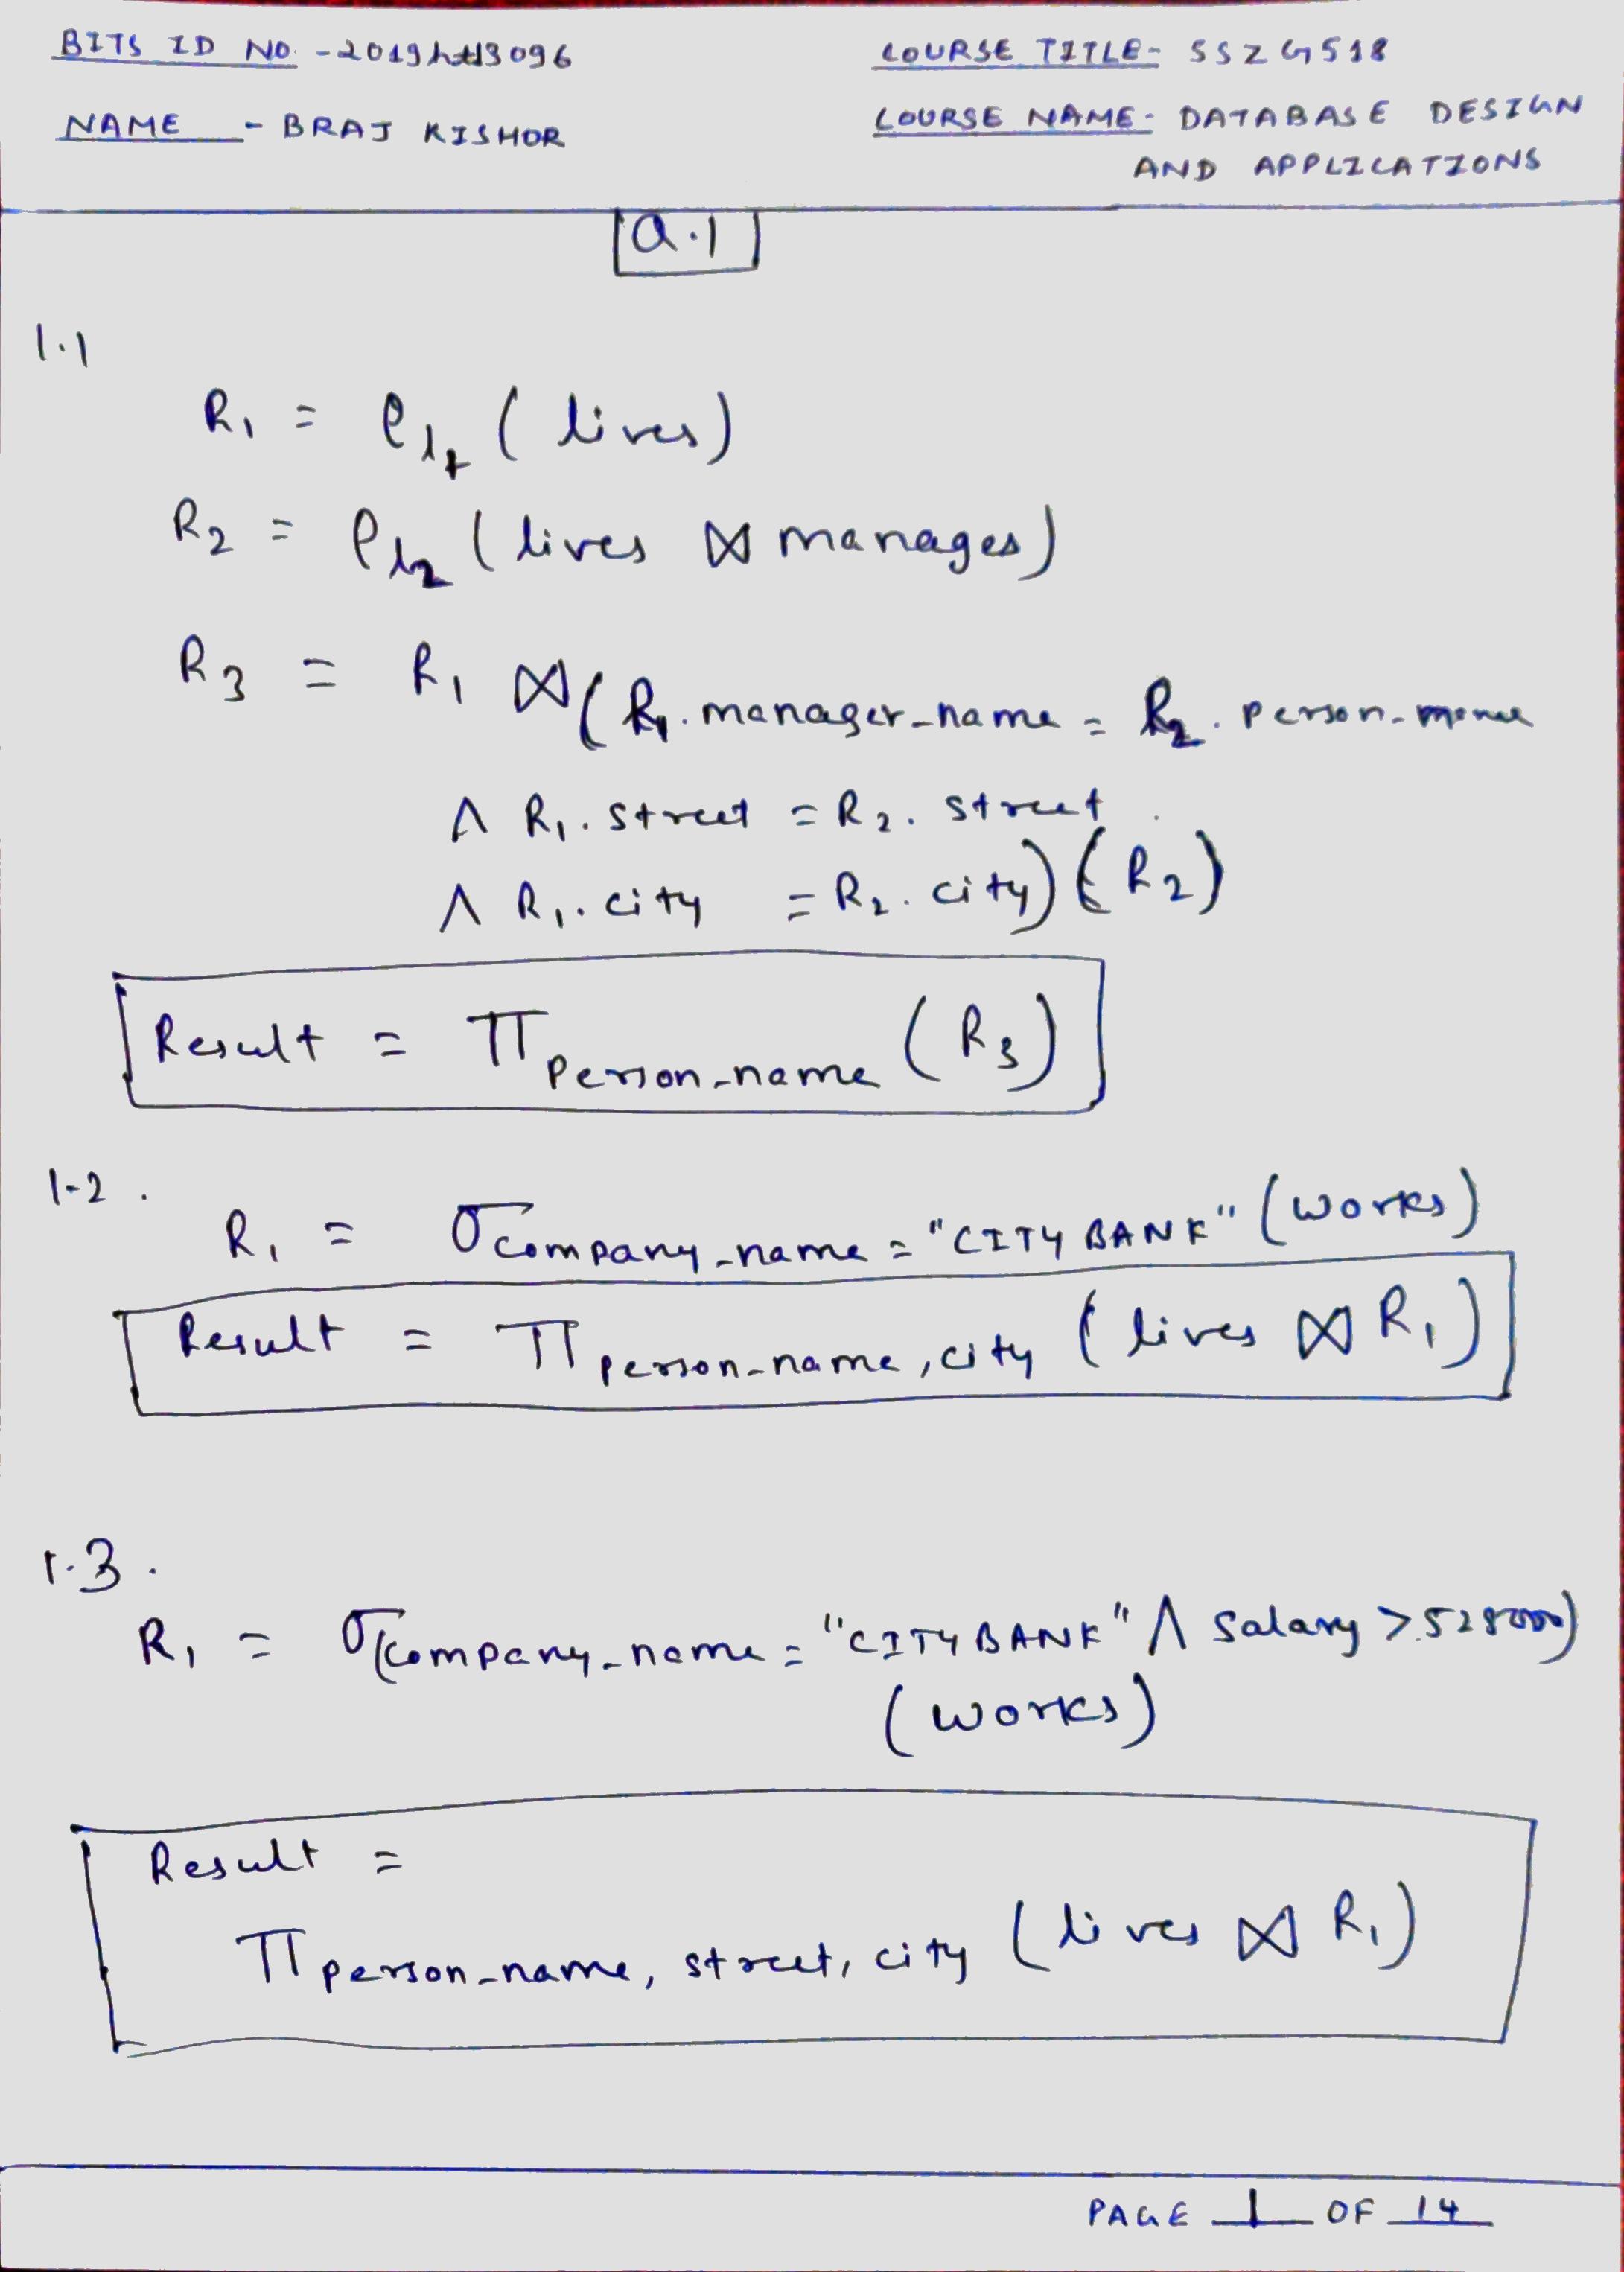 BITS ID NO. - 2019ht13096
COURSE TITLE- SSZG518
NAME - BRAJ KISHOR
COURSE NAME- DATABASE DESIGN
AND APPLICATIONS
Q.1
1.1
R₁ = ρ ( lives)
R₂ = ρ ( lives ⋈ manages)
R₃ = R₁ ⋈ ( R₁. manager-name = R₂. person-
∧ R₁. street = R₂. street
∧ R₁. city = R₂. city) (R₂)
Result = Π person-name (R₃)
1-2.
R₁ = σ company-name = "CITY BANK" (works)
Result = Π person-name, city ( lives ⋈ R₁)
1.3.
R₁ = σ (company-name = "CITY BANK" ∧ Salary >
(works)
Result =
Π person-name, street, city ( lives ⋈ R₁)
PAGE 1 OF 14